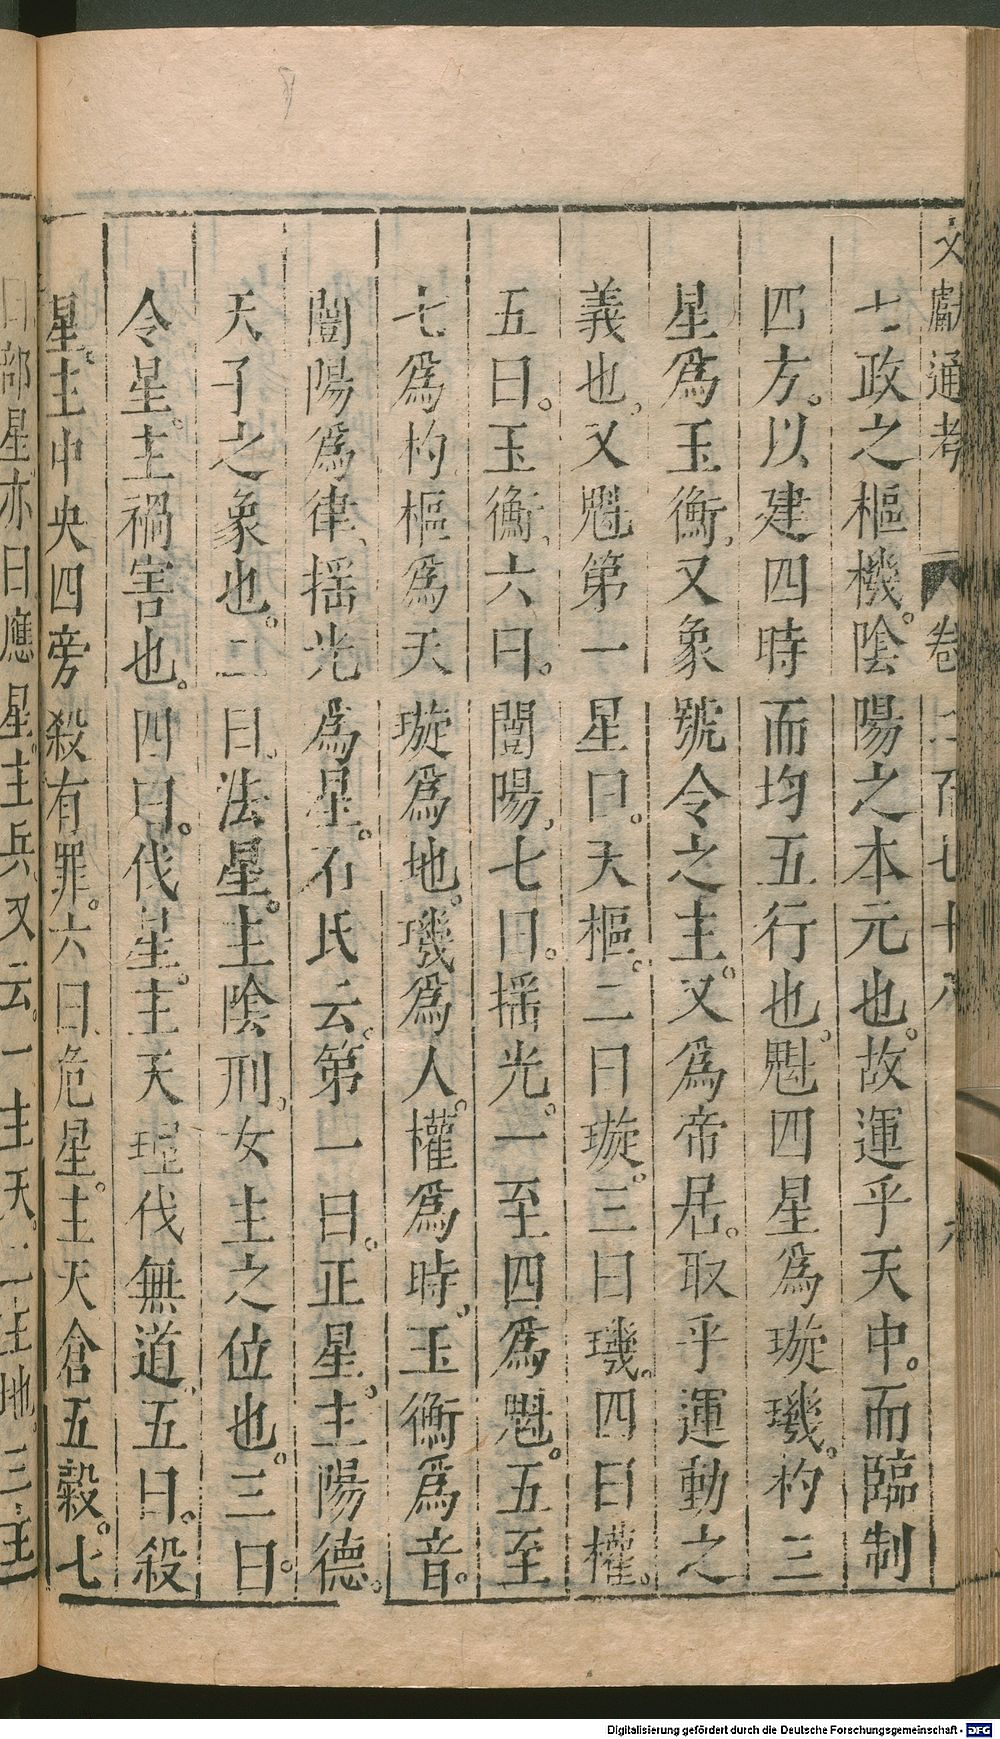 文獻通考 卷二百七十八 六
七政之樞機。陰陽之本元也。故運乎天中。而臨制
四方。以建四時而均五行也。魁四星爲璇璣。杓三
星爲玉衡、又象號令之主。又爲帝居。取乎運動之
義也、又魁第一星曰。天樞。二曰璇。三曰璣。四曰權。
五曰。玉衡、六曰。闓陽、七曰。揺光。一至四爲魁。五至
七爲杓樞爲天璇爲地。璣爲人。權爲時。玉衡爲音。
闓陽爲律、揺光爲星。石氏云。第一曰。正星。主陽德。
天子之象也。二曰。法星。主陰刑。女主之位也。三曰。
令星。主禍害也。四曰。伐星。主天理伐無道、五曰。殺
星。主中央四旁殺有罪。六曰危星。主天倉五穀。七
曰部星亦曰應星。主兵又云。一主天。二主地。三主
Digitalisierung gefördert durch die Deutsche Forschungsgemeinschaft - DFG